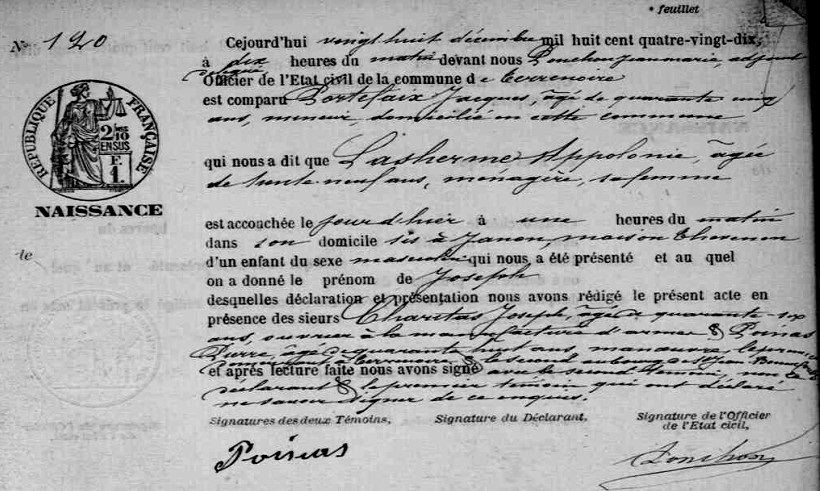 * feuillet
N° 120
Cejourd'hui vingt huit décembre mil huit cent quatre-vingt-dix,
à dix heures du matin devant nous Ponchon Jean marie, adjoint
Officier de l'Etat civil de la commune de Terrenoire
est comparu Portefaix Jacques, âgé de quarante cinq
ans, mineur, domicilié en cette commune
RÉPUBLIQUE FRANÇAISE
2/10
EN SUS
F.
1.
NAISSANCE
qui nous a dit que Lasherme Appolonie, âgée
de trente neuf ans, ménagère, sa femme
est accouchée le jour d'hier à une heures du matin
dans son domicile sis à Janon, maison Thevenon
d'un enfant du sexe masculin qui nous a été présenté et au quel
on a donné le prénom de Joseph
desquelles déclaration et présentation nous avons rédigé le présent acte en
présence des sieurs Charitas Joseph, âgé de quarante-six
ans, ouvrier à la manufacture d'armes & Poinas
Pierre, âgé de quarante huit ans, manœuvre, le premier
à Terrenoire & le second au bourg de St Jean
et après lecture faite nous avons signé avec le second témoin, non le
déclarant & le premier témoin qui ont déclaré
ne savoir signer de ce enquis.
Signatures des deux Témoins,
Signature du Déclarant.
Signature de l'Officier
de l'Etat civil,
Poinas
Ponchon